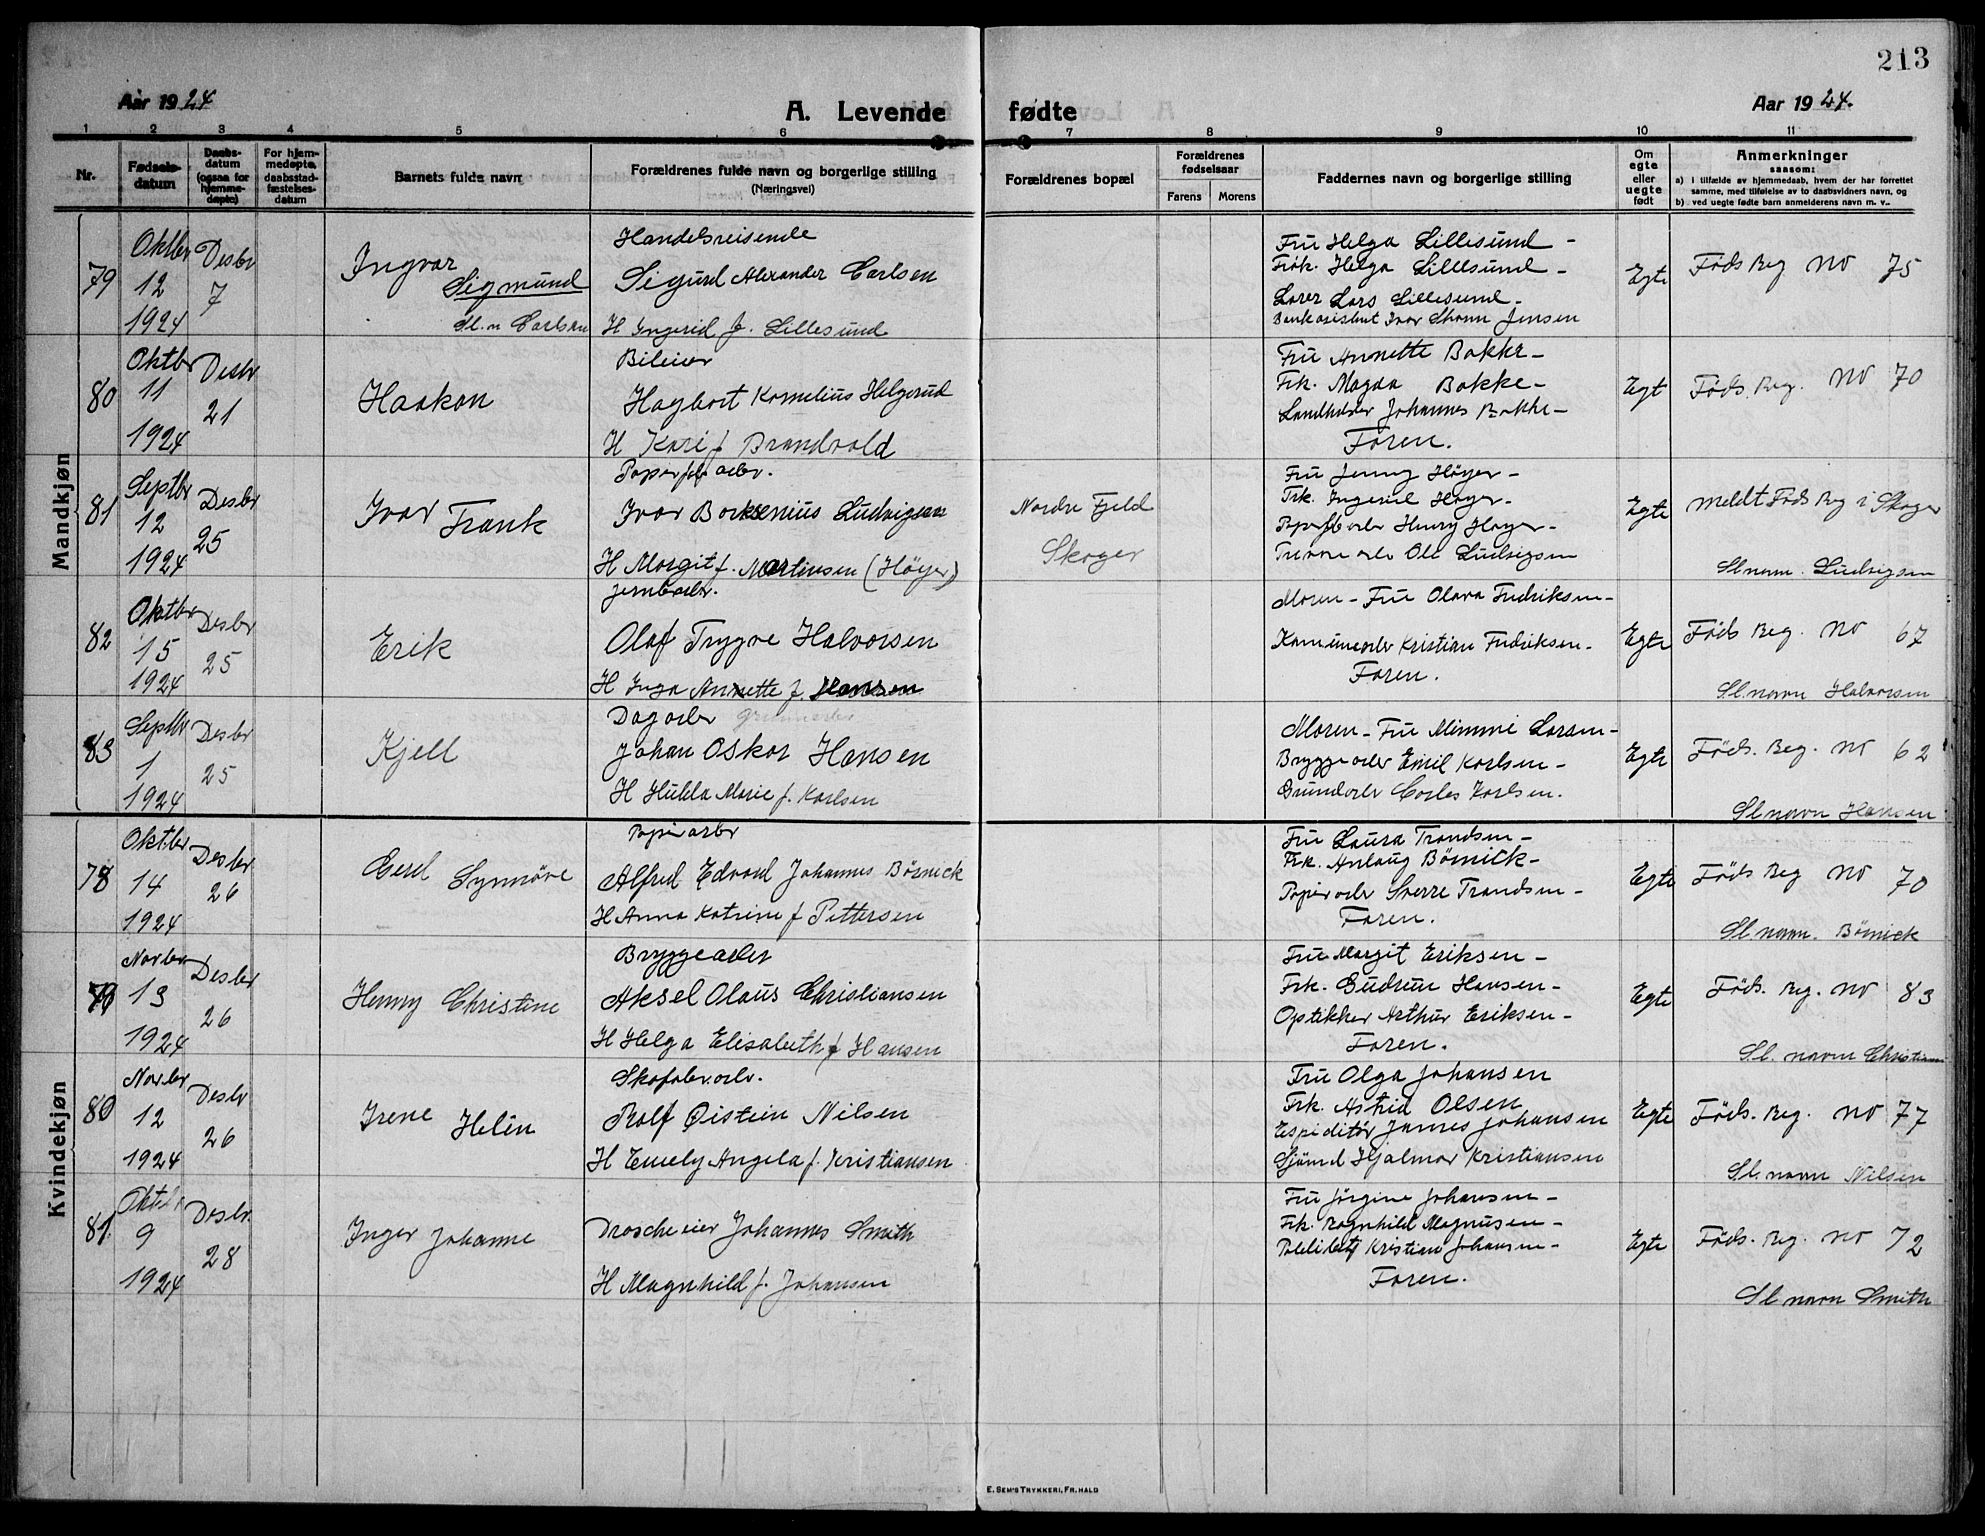 213
Aar 1924
A. Levende fødte
Aar 1924.
1 2 3 4 5 6 7 8 9 10 11
Nr.
Fødsels-
datum
Daabs-
datum
(ogsaa for
hjemme-
døpte)
For hjem-
medøpte,
daabsstad-
fæstelses-
datum
Barnets fulde navn
Forældrenes fulde navn og borgerlige stilling
(Næringsvei)
Forældrenes bopæl
Forældrenes
fødselsaar
Farens Morens
Faddernes navn og borgerlige stilling
Om
egte
eller
uegte
født
Anmerkninger
saasom:
a) i tilfælde av hjemmedaab, hvem der har forrettet
samme, med tilføielse av to daabsvidners navn, og
b) ved uegte fødte barn anmelderens navn m. v..
Mandkjøn
79
Oktbr
12
1924
Desbr
7
Ingvar
Sigmund
Sl.n Carlsen
Handelsreisende
Sigurd Alexander Carlsen
H Ingerid f. Lillesund
Fru Helga Lillesund -
Frøk. Helga Lillesund -
Lærer Lars Lillesund -
Bankasistent Ivar Jensen
Egte
Føds Reg No 75
80
Oktbr
11
1924
Desbr
21
Haakon
Bileier
Hagbart Kornelius Helgerud
H Kari f Brandvold
Fru Annette Bakke -
Frk. Magda Bakke -
Landhandler Johannes Bakke -
Faren.
Egt
Føds. Reg. No 70
81
Septbr
12
1924
Desbr
25
Ivar Frank
Papirfbarbr.
Ivar Ludvigsen
H Margit f. Martinsen (Höyer)
Nordre Fjeld
Skoger
Fru Jenny Höyer -
Frk. Ingerid Höyer -
Papirfbarbr Henry Höyer -
Ole Ludvigsen
Egte
meldt Føds Reg i Skoger
Sl navn. Ludvigsen
82
Oktbr
15
1924
Desbr
25
Erik
Jernbarbr.
Olaf Trygve Halvorsen
H Inga Annette f. Hansen
Moren - Fru Olava Fredriksen -
Kristian Fredriksen -
Faren.
Egte
Føds Reg. No 67
Sl. navn Halvorsen
83
Septbr
1
1924
Desbr
25
Kjell
Dagarbr
Johan Oskar Hansen
H Hulda Marie f. Karlsen
Moren - Fru Mimmi Larsen -
Bryggearbr Emil Karlsen -
Karlsen.
Egte
Føds. Reg. No 62
Sl navn Hansen
Kvindekjøn
78
Oktbr
14
1924
Desbr
26
Gerd Synnöve
Papirarbr
Alfred Edvard Johannes Börnick
H Anna Katrine f Pettersen
Fru Laura Trandsen -
Frk. Anlaug Börnick -
Papirarbr Sverre Trandsen -
Faren.
Egte
Føds Reg No 70
Sl navn. Börnick
79
Novbr
13
1924
Desbr
26
Henny Christine
Bryggearbr
Aksel Olaus Christiansen
H Helga Elisabeth f Hansen
Fru Margit Eriksen -
Frk. Gudrun Hansen -
Optikker Arthur Eriksen -
Faren.
Egte
Føds. Reg. No 83
Sl. navn Christiansen
80
Novbr
12
1924
Desbr
26
Irene Helen
Skofabr.arb.
Rolf Øistein Nilsen
H Emely Angela f. Kristiansen
Fru Olga Johansen
Frk. Astrid Olsen
Espeditør James Johansen
Sjömd Hjalmar Kristiansen
Egte
Føds. Reg. No 77
Sl. navn Nilsen
81
Oktbr
9
1924
Desbr.
28
Inger Johanne
Droscheeier Johannes Smith
H Magnhild f. Johansen
Fru Jörgine Johansen -
Frk. Ragnhild Magnusen -
Kristian Johansen -
Faren.
Egte
Føds. Reg. No 72
Sl navn Smith
E. SEM'S TRYKKERI, FR.HALD